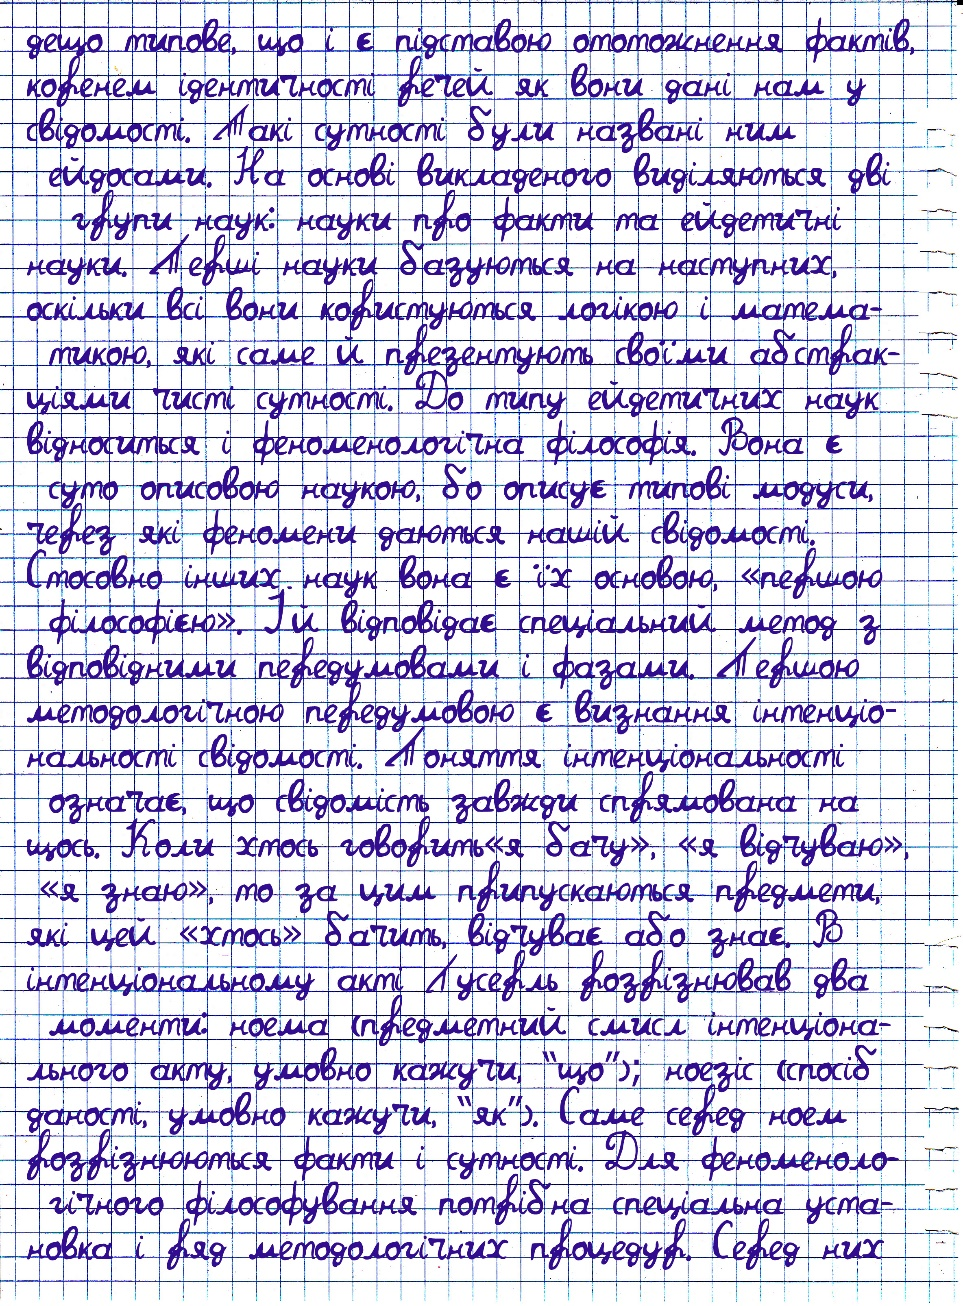 дещо типове, що і є підставою ототожнення фактів,
коренем ідентичності речей як вони дані нам у
свідомості. Такі сутності були названі ним
ейдосами. На основі викладеного виділяються дві
групи наук: науки про факти та ейдетичні
науки. Перші науки базуються на наступних,
оскільки всі вони користуються логікою і матема-
тикою, які саме й презентують своїми абстрак-
ціями чисті сутності. До типу ейдетичних наук
відноситься і феноменологічна філософія. Вона є
суто описовою наукою, бо описує типові модуси,
через які феномени даються нашій свідомості.
Стосовно інших наук вона є їх основою, «першою
філософією». Їй відповідає спеціальний метод з
відповідними передумовами і фазами. Першою
методологічною передумовою є визнання інтенціо-
нальності свідомості. Поняття інтенціональності
означає, що свідомість завжди спрямована на
щось. Коли хтось говорить«я бачу», «я відчуваю»,
«я знаю», то за цим припускаються предмети,
які цей «хтось» бачить, відчуває або знає. В
інтенціональному акті Гусерль розрізнював два
моменти: ноема (предметний смисл інтенціона-
льного акту, умовно кажучи, "що"); ноезіс (спосіб
даності, умовно кажучи, "як"). Саме серед ноем
розрізнюються факти і сутності. Для феноменоло-
гічного філософування потрібна спеціальна уста-
новка і ряд методологічних процедур. Серед них